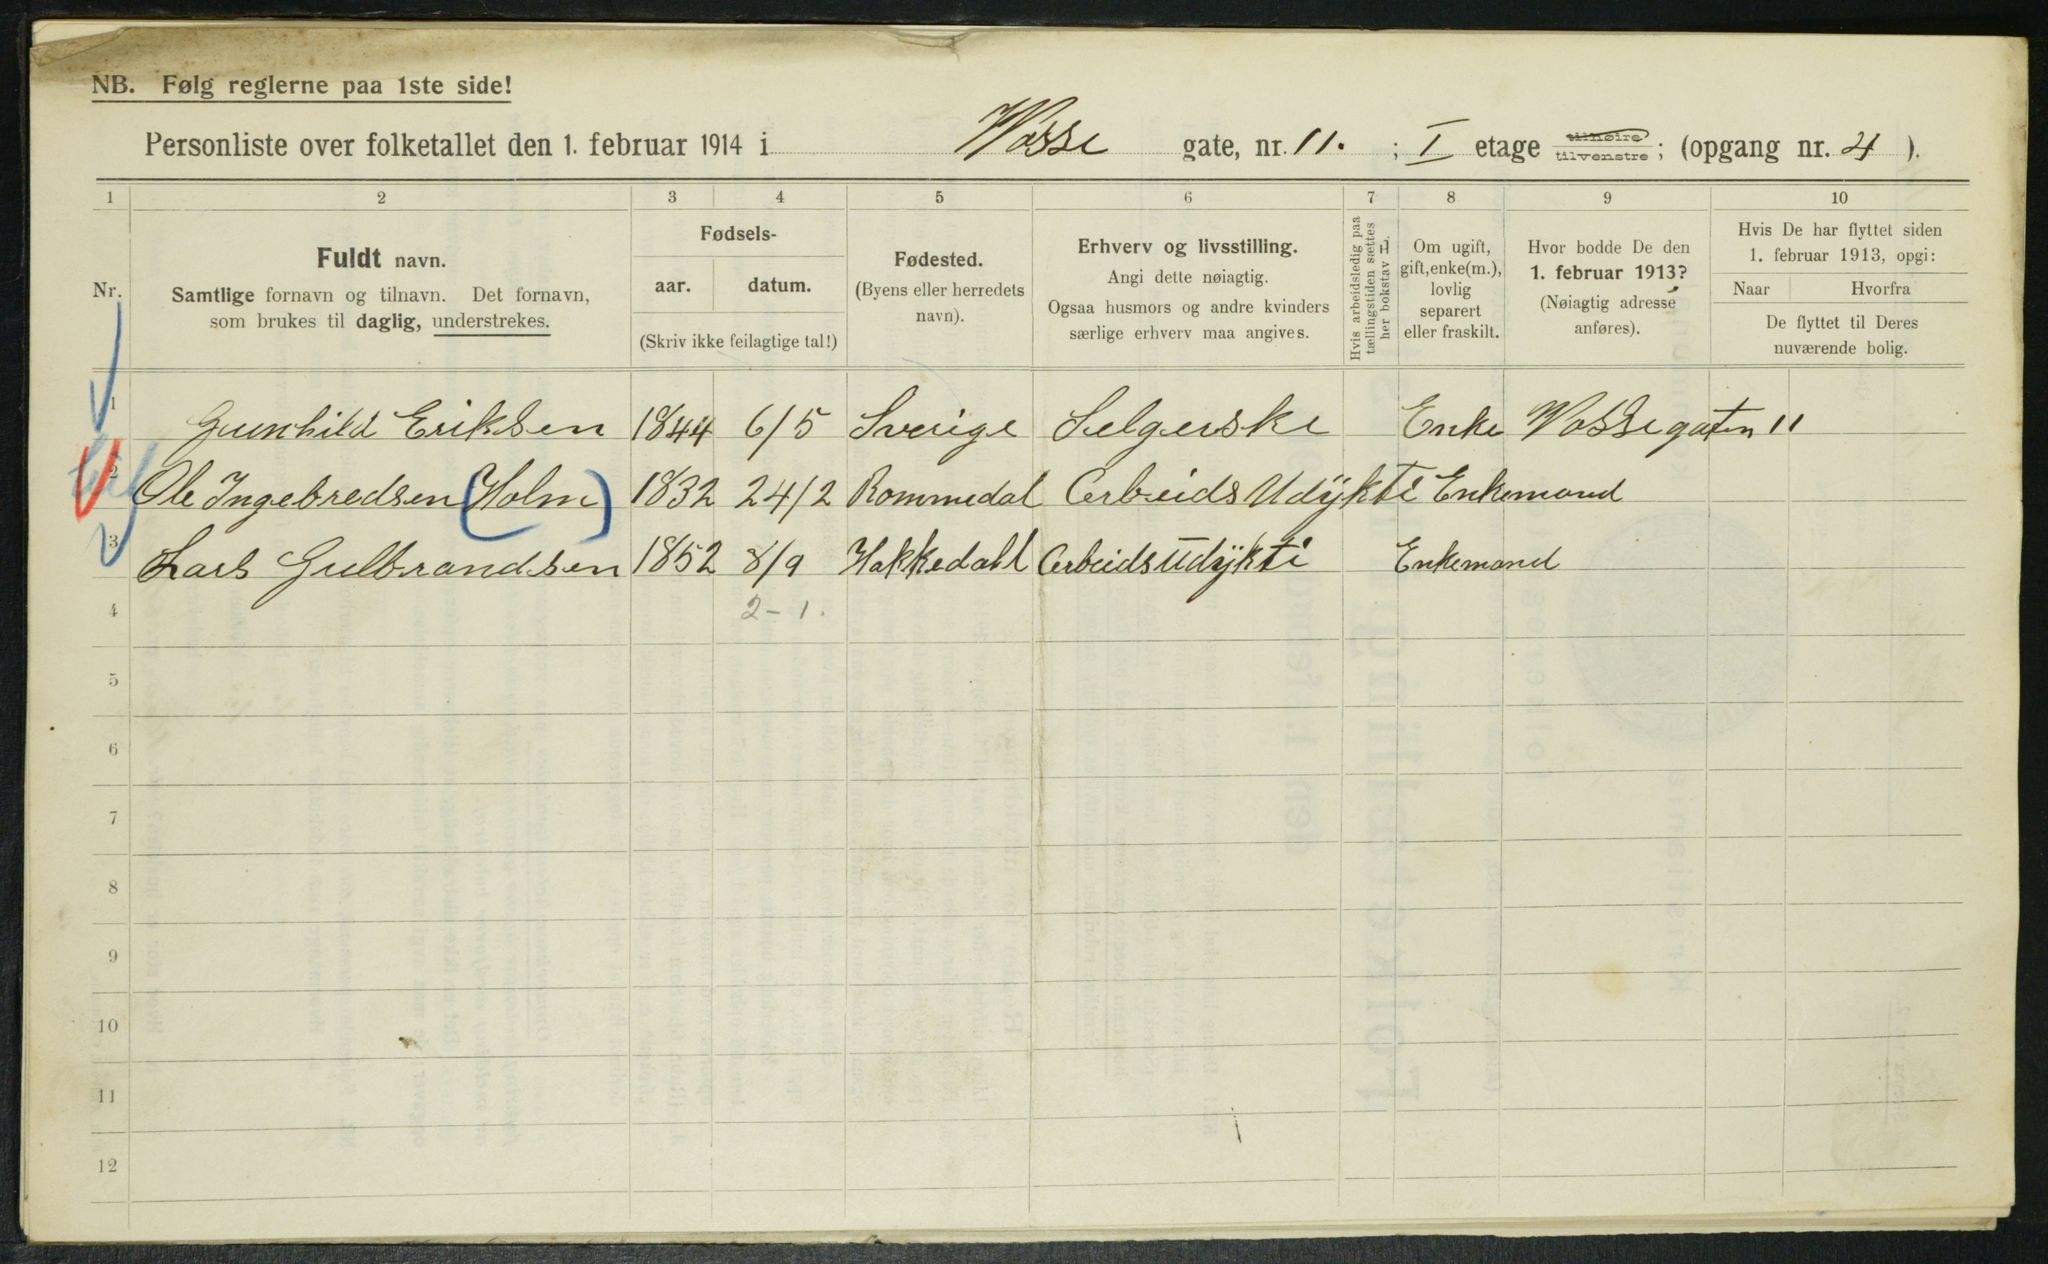 NB. Følg reglerne paa 1ste side!
Personliste over folketallet den 1. februar 1914 i Vosse gate, nr. 11. ; I etage tilhøire tilvenstre; (opgang nr. 4 ).
1 2 3 4 5 6 7 8 9 10
Nr.
Fuldt navn.
Samtlige fornavn og tilnavn. Det fornavn,
som brukes til daglig, understrekes.
Fødsels-
aar. datum.
(Skriv ikke feilagtige tal!)
Fødested.
(Byens eller herredets
navn).
Erhverv og livsstilling.
Angi dette nøiagtig.
Ogsaa husmors og andre kvinders
særlige erhverv maa angives.
Hvis arbeidsledig paa
tællingstiden sættes
her bokstav L
Om ugift,
gift, enke(m.),
lovlig
separert
eller fraskilt.
Hvor bodde De den
1. februar 1913?
(Nøiagtig adresse
anføres).
Hvis De har flyttet siden
1. februar 1913, opgi:
Naar Hvorfra
De flyttet til Deres
nuværende bolig.
1 Gunhild Eriksen 1844 6/5 Sverige Selgerske Enke Vossegaten 11
2 Ole Ingebredsen (Holm) 1832 24/2 Rommedal Arbeids Udykti Enkemand
3 Lars Gulbrandsen 1852 8/9 Hakkedall Arbeidsudykti Enkemand
4 2-1.
5
6
7
8
9
10
11
12